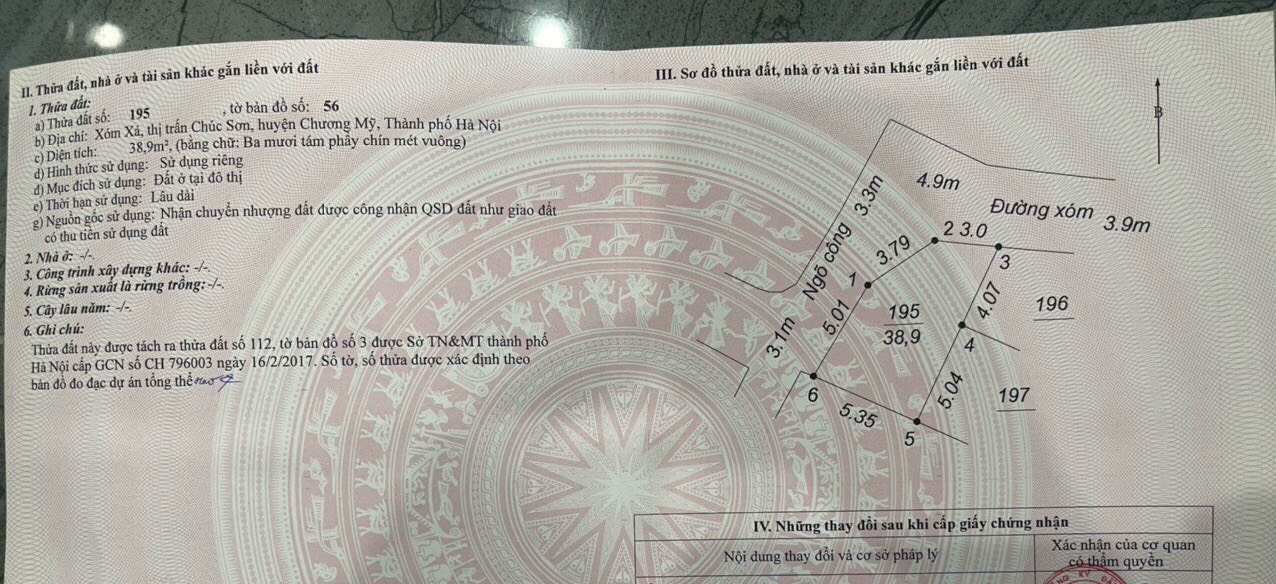 II. Thửa đất, nhà ở và tài sản khác gắn liền với đất
1. Thửa đất:
a) Thửa đất số: 195 , tờ bản đồ số: 56
b) Địa chỉ: Xóm Xá, thị trấn Chúc Sơn, huyện Chương Mỹ, Thành phố Hà Nội
c) Diện tích: 38,9m², (bằng chữ: Ba mươi tám phẩy chín mét vuông)
d) Hình thức sử dụng: Sử dụng riêng
đ) Mục đích sử dụng: Đất ở tại đô thị
e) Thời hạn sử dụng: Lâu dài
g) Nguồn gốc sử dụng: Nhận chuyển nhượng đất được công nhận QSD đất như giao đất
có thu tiền sử dụng đất
2. Nhà ở: -/-.
3. Công trình xây dựng khác: -/-.
4. Rừng sản xuất là rừng trồng: -/-.
5. Cây lâu năm: -/-.
6. Ghi chú:
Thửa đất này được tách ra thửa đất số 112, tờ bản đồ số 3 được Sở TN&MT thành phố
Hà Nội cấp GCN số CH 796003 ngày 16/2/2017. Số tờ, số thửa được xác định theo
bản đồ đo đạc dự án tổng thể
III. Sơ đồ thửa đất, nhà ở và tài sản khác gắn liền với đất
B
4.9m
Đường xóm 3.9m
Ngõ công 3.3m
3.1m
3.79
2 3.0
3
1
5.01
195
38,9
4.07
196
4
5.04
197
6
5.35
5
IV. Những thay đổi sau khi cấp giấy chứng nhận
Nội dung thay đổi và cơ sở pháp lý
Xác nhận của cơ quan
có thẩm quyền